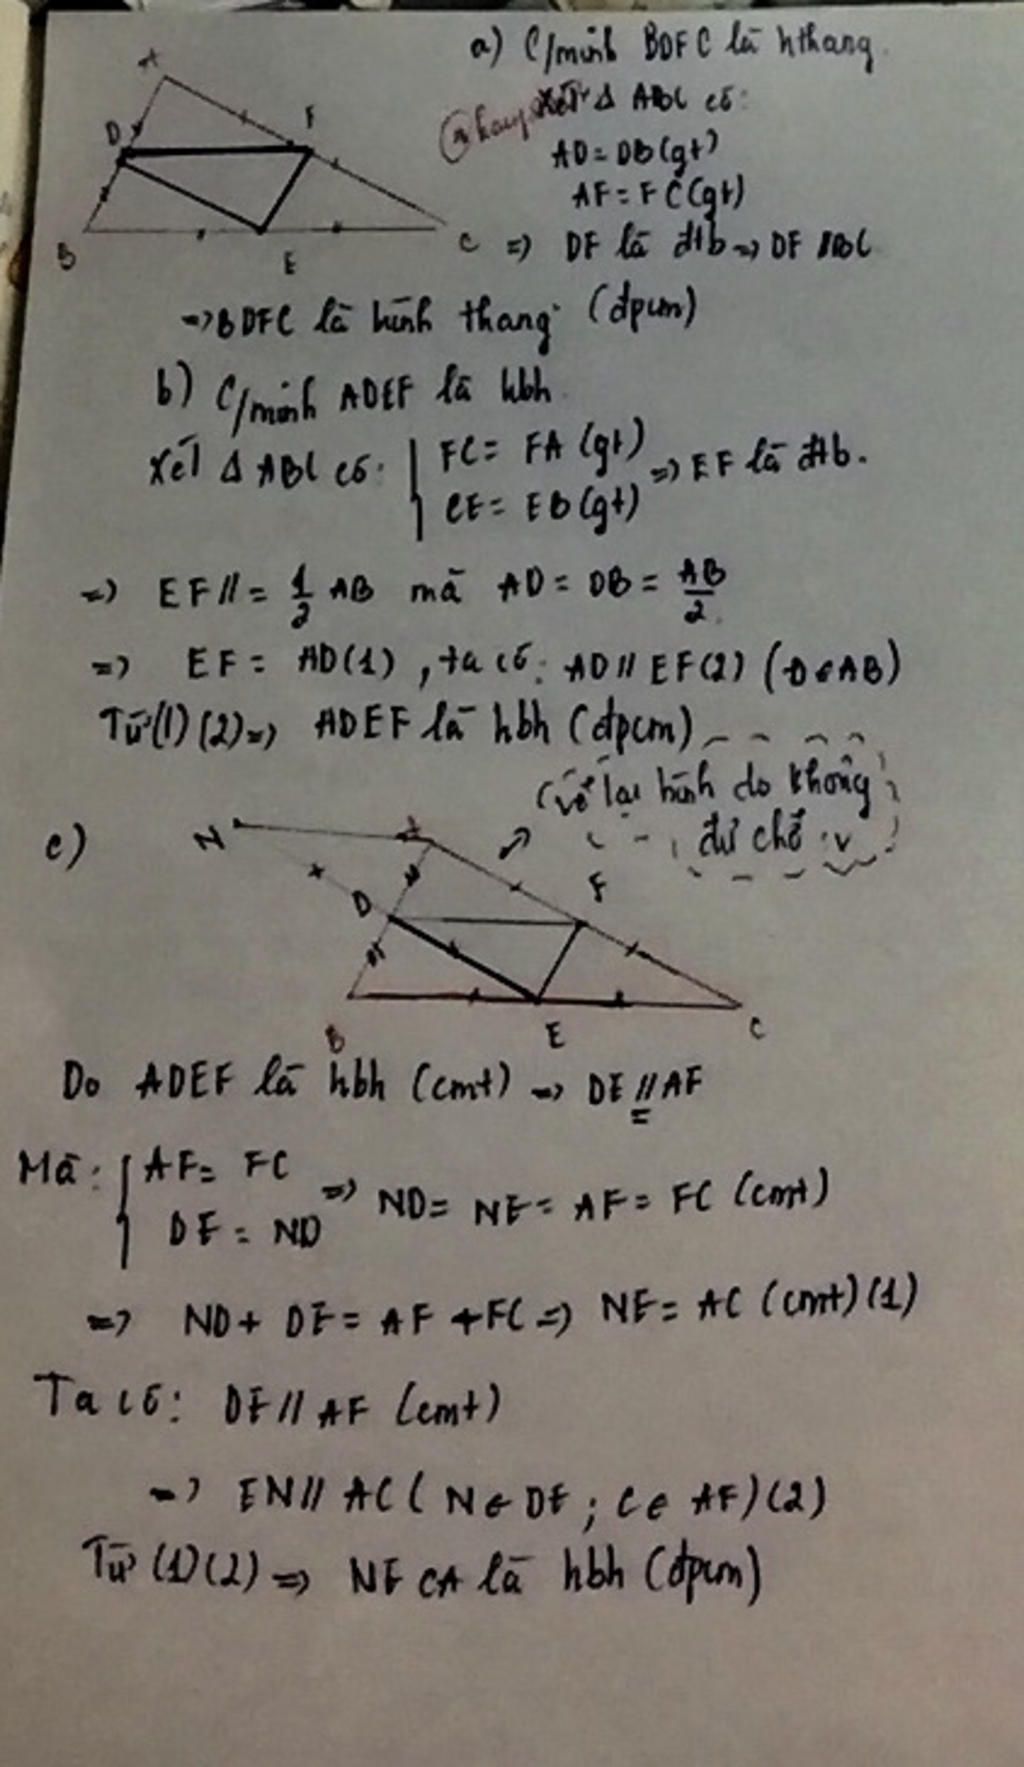 a) C/minh BDFC là hthang
Xét Δ ABC có:
AD = DB (gt)
AF = FC (gt)
A
D
F
B
E
C
=> DF là đtb => DF // BC
=> BDFC là hình thang (đpcm)
b) C/minh ADEF là hbh
Xét Δ ABC có: FC = FA (gt) => EF là đtb.
CE = EB (gt)
=> EF // = 1/2 AB mà AD = DB = AB/2
=> EF = AD (1), ta có: AD // EF (2) (D ∈ AB)
Từ (1) (2) => ADEF là hbh (đpcm)
(vẽ lại hình do không
đủ chỗ :v
c)
N
A
D
F
B
E
C
Do ADEF là hbh (cmt) => DE // = AF
Mà: AF = FC => ND = NE = AF = FC (cmt)
DE = ND
=> ND + DE = AF + FC => NE = AC (cmt) (1)
Ta có: DE // AF (cmt)
=> EN // AC (N ∈ DE ; C ∈ AF) (2)
Từ (1) (2) => NECA là hbh (đpcm)